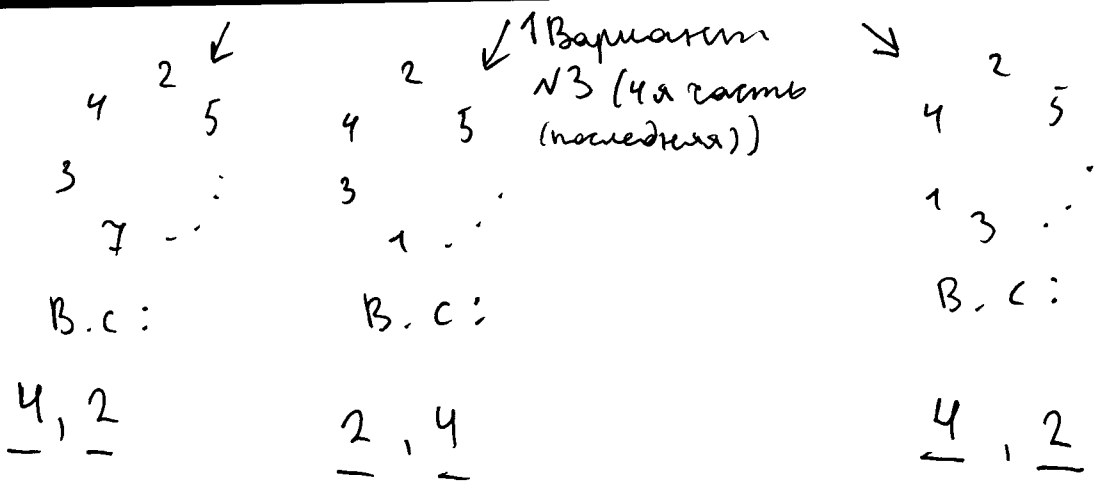 1 Вариант
№3 (4я часть
(последняя))
2
4 5
3 :
7 - . ·
В.с:
4, 2
2
4 5
3 .
1 . ·
В.с:
2, 4
2
4 5
1 .
3 . ·
В.с:
4, 2